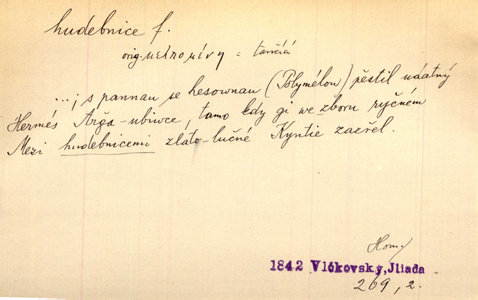 hudebnice f.
orig. μελπομένῃ = tančíá
...; s pannau se hesownau (Polymélou) pěstil udatný
Hermés Arga-ubiwce, tamo kdy gi we zboru ryčném
Mezi hudebnicemi zlato-lučné Kyntie zazřel.
1842 Vlčkovský, Iliada
269, 2.